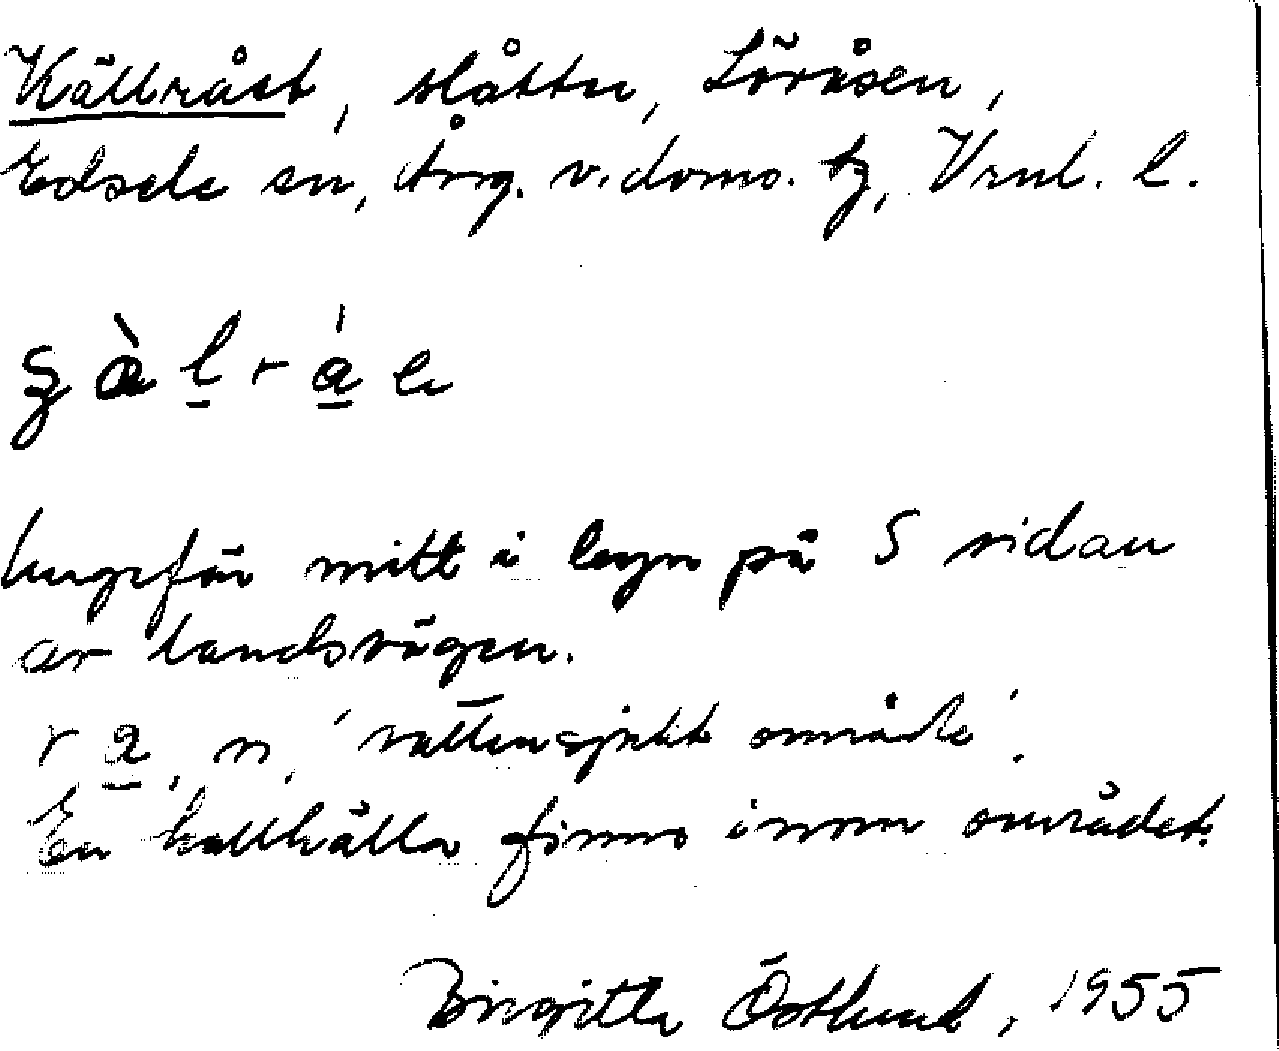 Källrået, slåtter, Löråsen,
Edsele sn, Ång. v. doms. tg, Vrnl. l.
l r a
Ungefär mitt i byn på S sidan
av landsvägen.
r a, n, 'vattensjukt område'.
En kallkälla finns inom området.
Birgitta Östlund, 1955